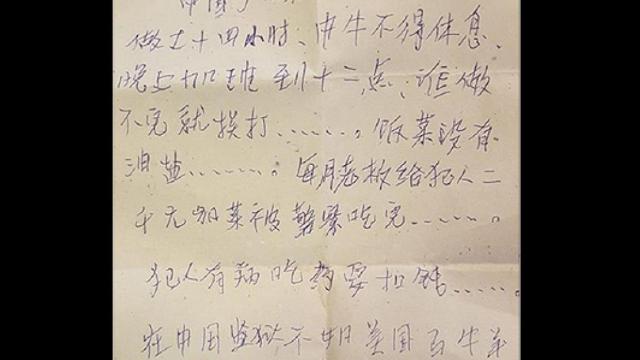 做工十四小时、中午不得休息、
晚上加班到十二点、谁做
不完就挨打……。饭菜没有
油盐……。每月老板给犯人二
千元加菜被警察吃完……。
犯人有病吃药要扣钱……。
在中国监狱不如美国的牛羊